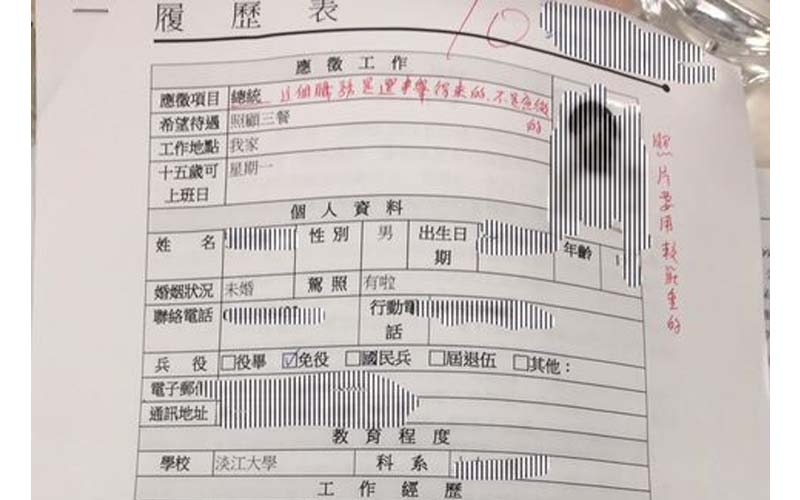 履歷表
10
應徵工作
應徵項目 總統 這個職務是選舉得來的、不是應徵的
希望待遇 照顧三餐
工作地點 我家
十五歲可上班日 星期一
照片要用較莊重的
個人資料
姓名 性別 男 出生日期 年齡 1
婚姻狀況 未婚 駕照 有啦
聯絡電話 行動電話
兵役 □役畢 ☑免役 □國民兵 □屆退伍 □其他：
電子郵
通訊地址
教育程度
學校 淡江大學 科系
工作經歷